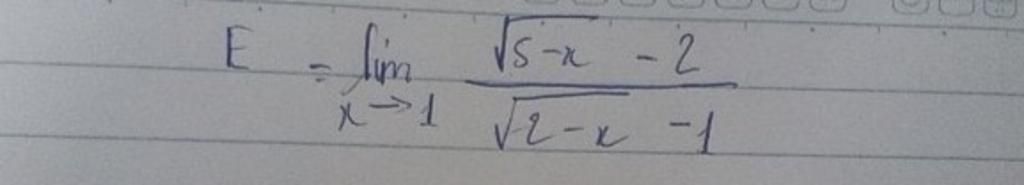 E = lim x→1 (√(5-x) - 2)/(√(2-x) - 1)